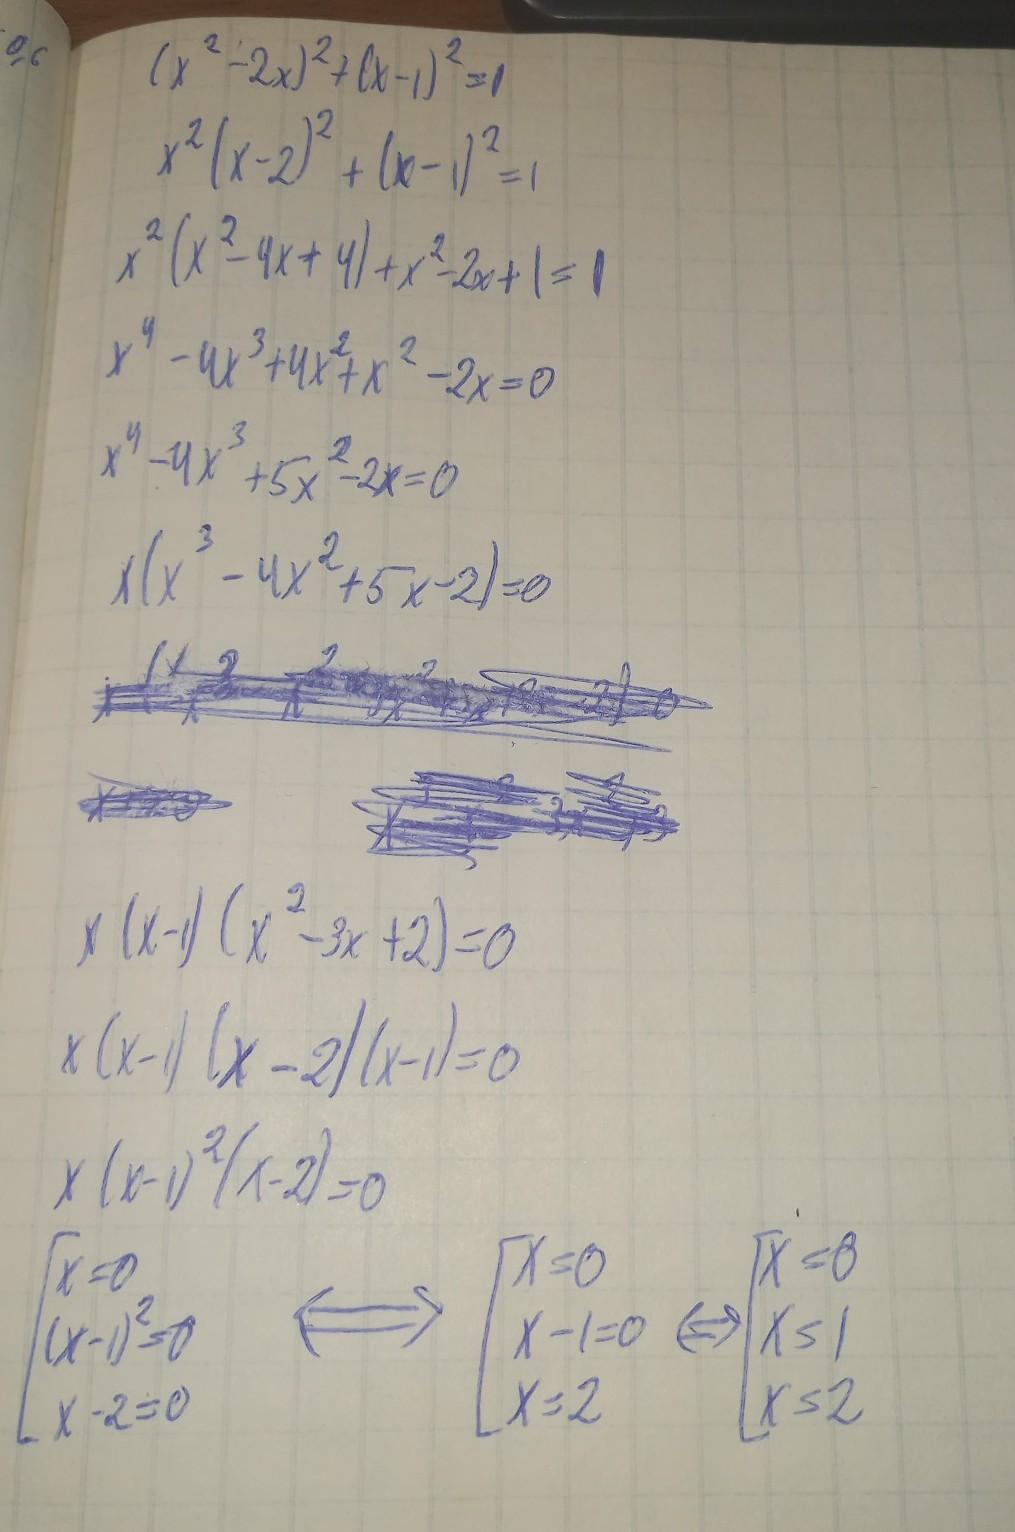 (x² - 2x)² + (x-1)² = 1
x²(x-2)² + (x-1)² = 1
x²(x² - 4x + 4) + x² - 2x + 1 = 1
x⁴ - 4x³ + 4x² + x² - 2x = 0
x⁴ - 4x³ + 5x² - 2x = 0
x(x³ - 4x² + 5x - 2) = 0
x(x-1)(x² - 3x + 2) = 0
x(x-1)(x-2)(x-1) = 0
x(x-1)²(x-2) = 0
[x=0 ⟺ [x=0 ⟺ [x=0
(x-1)²=0 x-1=0 x=1
x-2=0 x=2 x=2